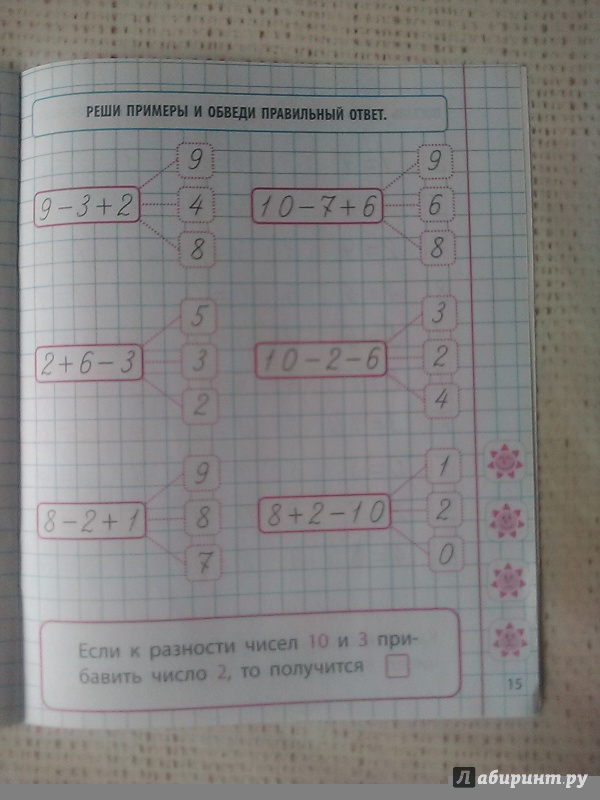 РЕШИ ПРИМЕРЫ И ОБВЕДИ ПРАВИЛЬНЫЙ ОТВЕТ.
9
9-3+2
4
8
9
10-7+6
6
8
5
2+6-3
3
2
3
10-2-6
2
4
9
8-2+1
8
7
1
8+2-10
2
0
Если к разности чисел 10 и 3 при-
бавить число 2, то получится
15
Лабиринт.ру